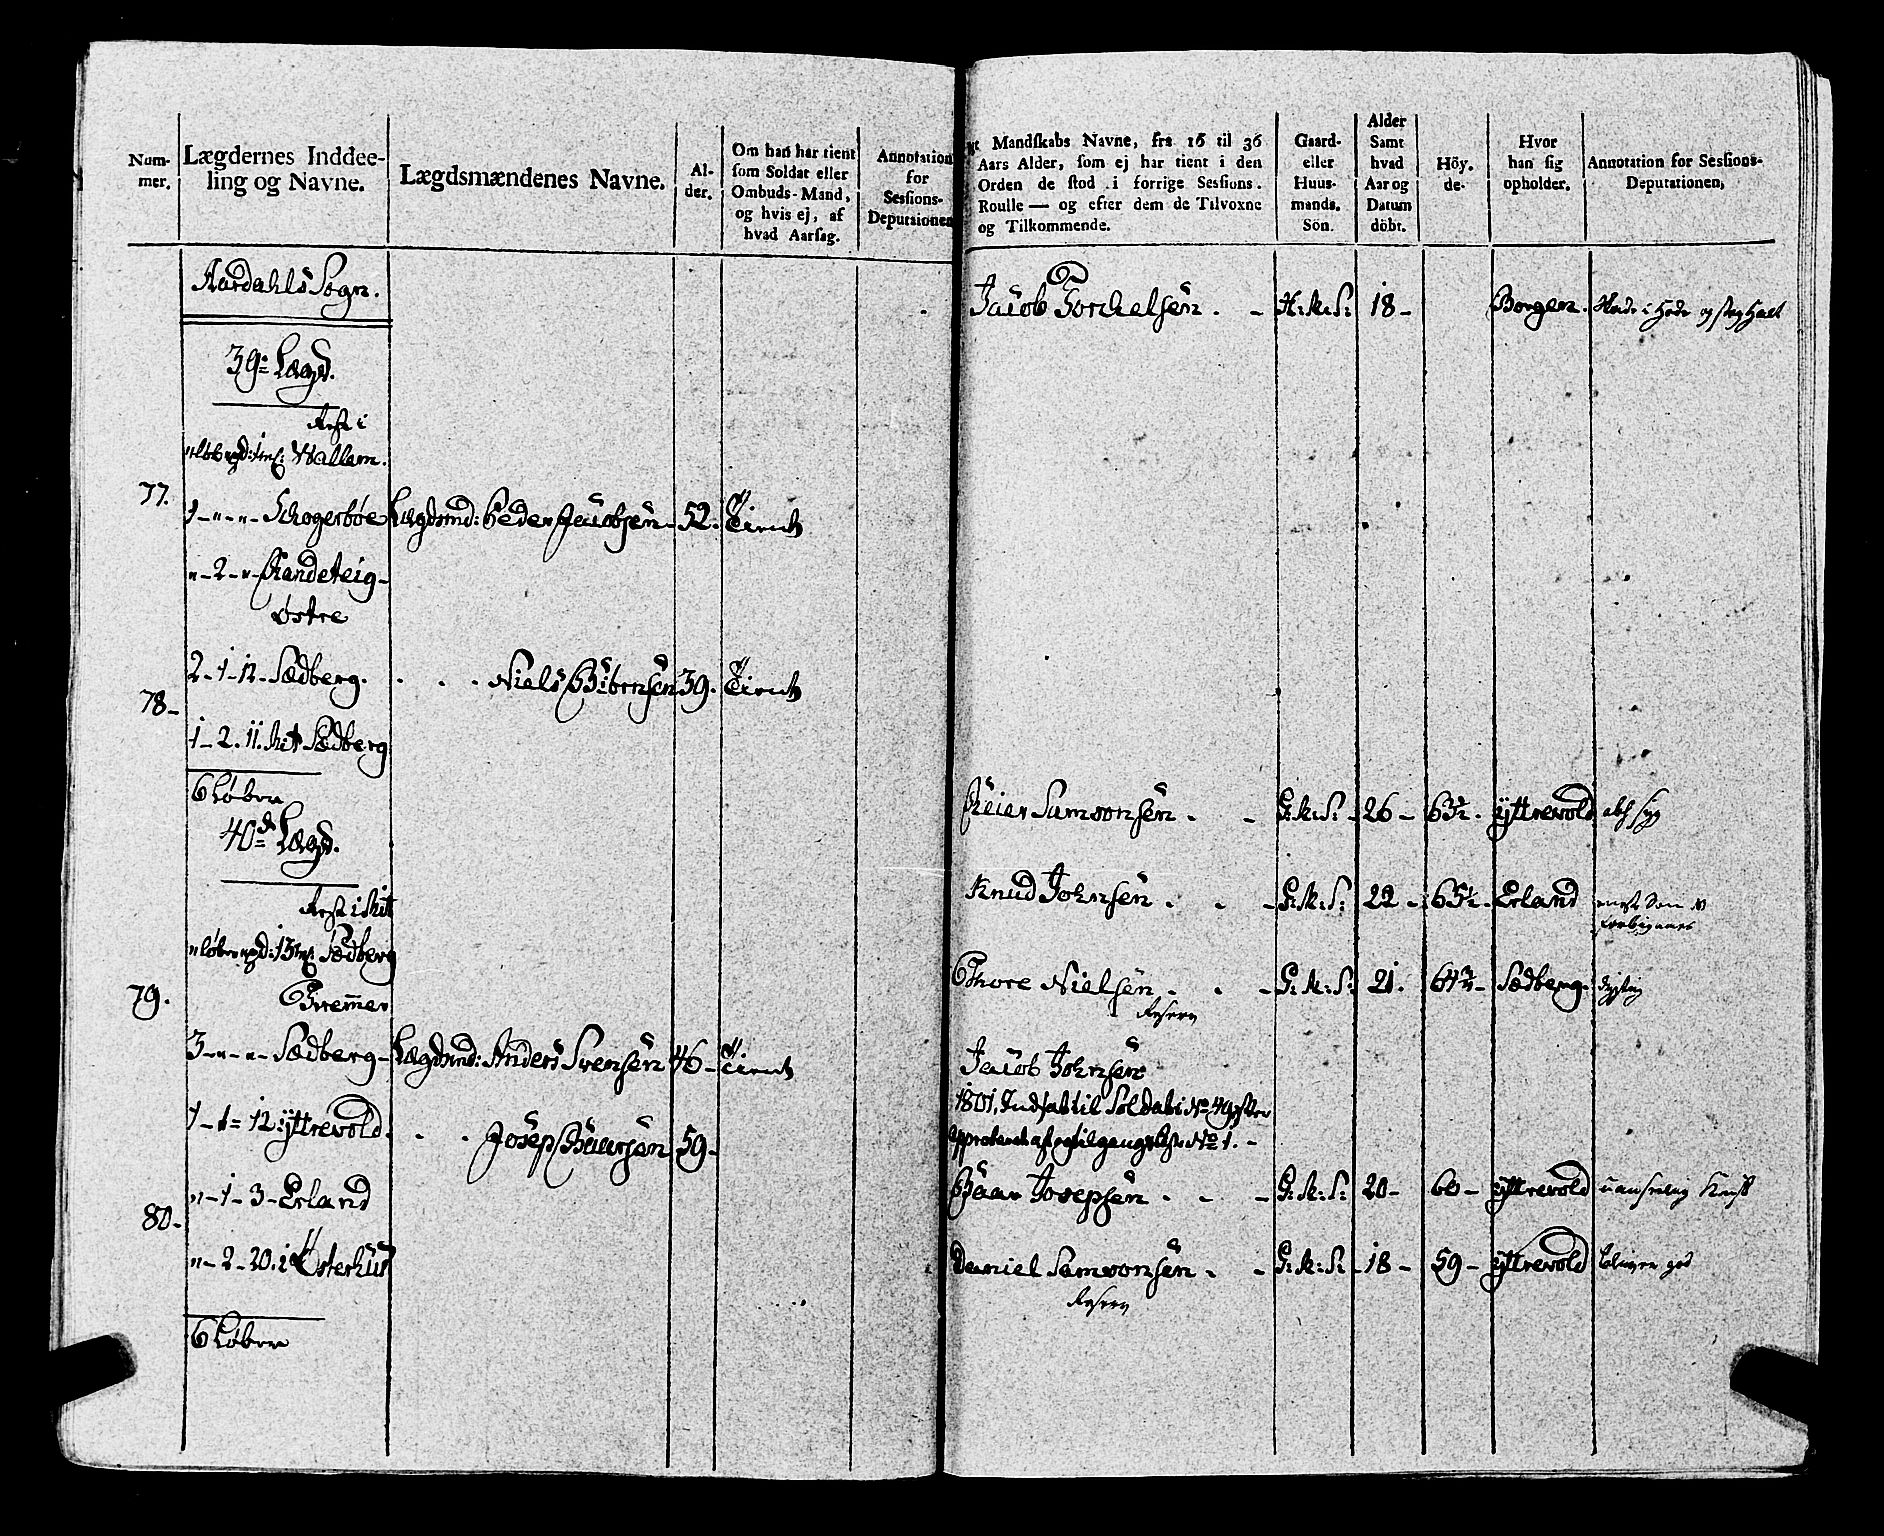 Num-
mer.
Lægdernes Inddee-
ling og Navne.
Lægdsmændenes Navne.
Al-
der.
Om han har tient
som Soldat eller
Ombuds-Mand,
og hvis ej, af
hvad Aarsag.
Annotation
for
Sessions-
Deputationen
Aardahls Sogn.
39te Lægd.
Rest i
Wallem.
77.
1 - " - " - Schogerbøe Lægdsmd: Peder Jacobsen - 52. Tient
" - 2 - " - Randeteig -
østre
2 - 1 - 12 - Sædberg. . . . Niels Biörnsen 39. Tient
78 -
1 - 2. 11. Sædberg
6 Løber
40de Lægd.
Rest i
Sædberg
79.
3 - " - " - Sædberg - Lægdsmd: Anders Svensen 46 - Tient
1 - 1 = 12. Yttrevold. . . Josep Baarsen 59 -
" - 1 - 3 - Erland
80 -
" - 2 - 20. i Østerhus
6 Løber
Mandskabs Navne, fra 16 til 36
Aars Alder, som ej har tient i den
Orden de stod i forrige Sessions.
Roulle — og efter dem de Tilvoxne
og Tilkommende.
Gaard-
eller
Huus-
mands.
Sön.
Alder
Samt
hvad
Aar og
Datum
döbt.
Höy.
de.
Hvor
han sig
opholder.
Annotation for Sessions-
Deputationen,
Jacob Torchelsen . - H:k:S: 18 - Borgen.
Reier Samsonsen . - G:k:S: - 26 - 63½. Yttrevold
Knud Johnsen . - - G:k:S: 22 - 65½ - Erland
Thore Nielsen . . - G:k:S: 21. 64¾ - Sædberg. dygtig
Reserv
Jacob Johnsen
1801, Indsat til Soldat i No 49
No 1. -
Baar Josepsen . - - G:k:S: 20 - 60 - Yttrevold
Daniel Samsonsen . - G:k:S: - 18 - 59 - Yttrevold
Reserv